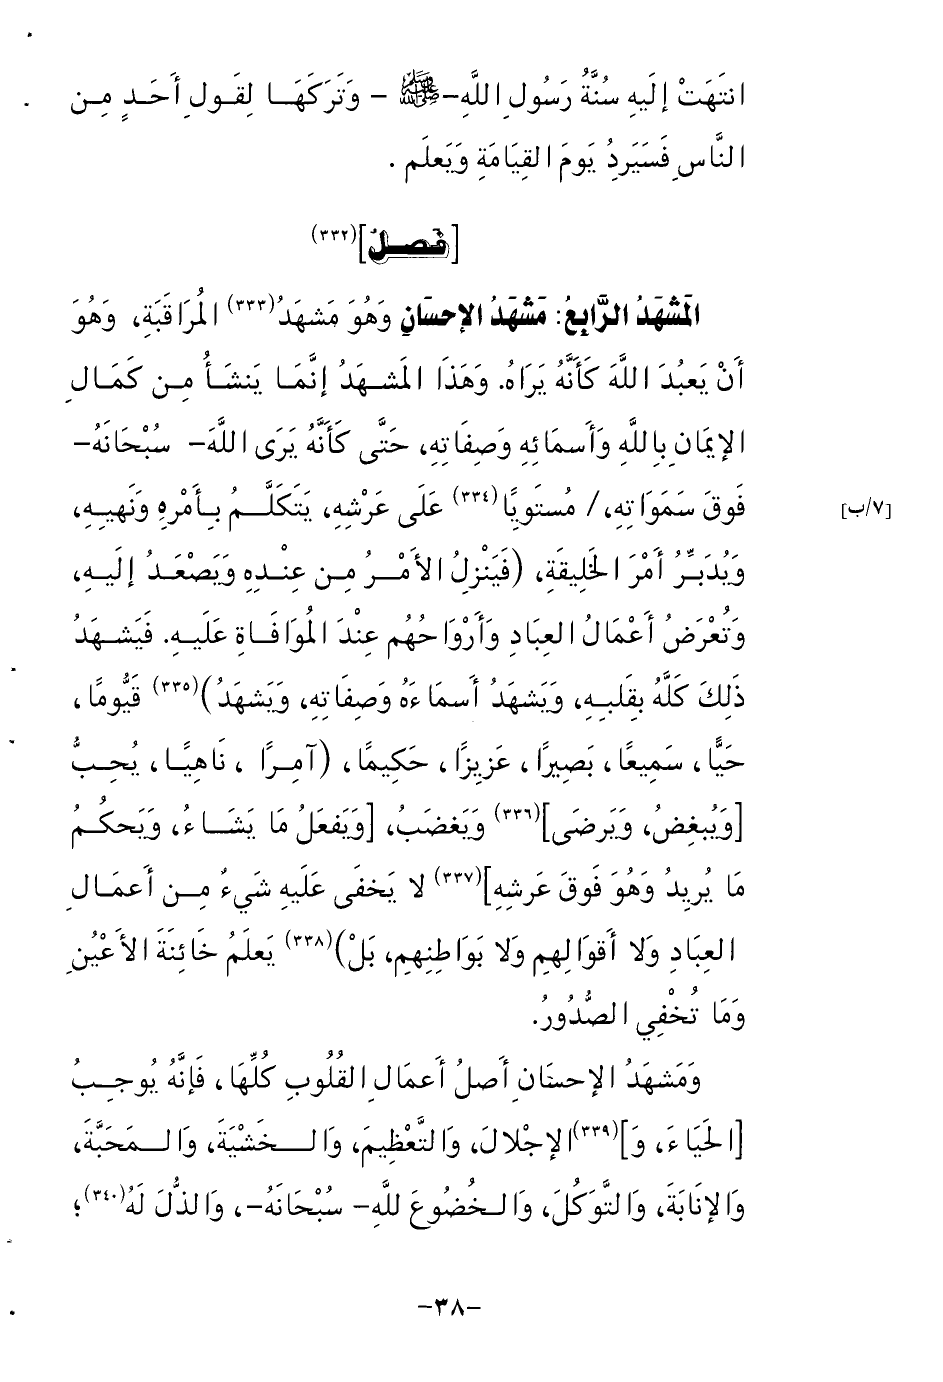 انتَهَتْ إلَيهِ سُنَّةُ رَسُولِ اللَّهِ-ﷺ - وَتَرَكَهَا لِقَولِ أَحَدٍ مِن
النَّاسِ فَسَيَرِدُ يَومَ القِيَامَةِ وَيَعلَم .
[فَصلٌ](٣٣٢)
المَشهَدُ الرَّابِعُ: مَشهَدُ الإحسَانِ وَهُوَ مَشهَدُ(٣٣٣) المُرَاقَبَةِ، وَهُوَ
أَنْ يَعبُدَ اللَّهَ كَأَنَّهُ يَرَاهُ. وَهَذَا المَشهَدُ إنَّمَا يَنشَأُ مِن كَمَالِ
الإيمَانِ بِاللَّهِ وَأَسمَائِهِ وَصِفَاتِهِ، حَتَّى كَأَنَّهُ يَرَى اللَّهَ- سُبْحَانَهُ-
فَوقَ سَمَوَاتِهِ،/ مُستَوِيًا(٣٣٤) عَلَى عَرْشِهِ، يَتَكَلَّمُ بِأَمْرِهِ وَنَهيِهِ،
[٧/ب]
وَيُدَبِّرُ أَمْرَ الخَلِيقَةِ، (فَيَنْزِلُ الأَمْرُ مِن عِنْدِهِ وَيَصْعَدُ إلَيهِ،
وَتُعْرَضُ أَعْمَالُ العِبَادِ وَأَروَاحُهُم عِنْدَ المُوَافَاةِ عَلَيهِ. فَيَشهَدُ
ذَلِكَ كَلَّهُ بِقَلبِهِ، وَيَشهَدُ أَسمَاءَهُ وَصِفَاتِهِ، وَيَشهَدُ)(٣٣٥) قَيُّومًا،
حَيًّا، سَمِيعًا، بَصِيرًا، عَزِيزًا، حَكِيمًا، (آمِرًا ، نَاهِيًا، يُحِبُّ
[وَيُبغِضُ، وَيَرضَى](٣٣٦) وَيَغضَبُ، [وَيَفعَلُ مَا يَشَاءُ، وَيَحكُمُ
مَا يُرِيدُ وَهُوَ فَوقَ عَرشِهِ](٣٣٧) لا يَخفَى عَلَيهِ شَيءُ مِن أَعمَالِ
العِبَادِ وَلا أَقوَالِهِم وَلا بَوَاطِنِهِم، بَلْ)(٣٣٨) يَعلَمُ خَائِنَةَ الأَعْيُنِ
وَمَا تُخْفِي الصُّدُورُ.
وَمَشهَدُ الإحسَانِ أَصلُ أَعمَالِ القُلُوبِ كُلِّهَا، فَإنَّهُ يُوجِبُ
[الحَيَاءَ، وَ](٣٣٩)الإجْلالَ، وَالتَّعْظِيمَ، وَالخَشْيَةَ، وَالمَحَبَّةَ،
وَالإنَابَةَ، وَالتَّوَكُلَ، وَالخُضُوعَ للَّهِ- سُبْحَانَهُ-، وَالذُّلَ لَهُ(٣٤٠)؛
-٣٨-